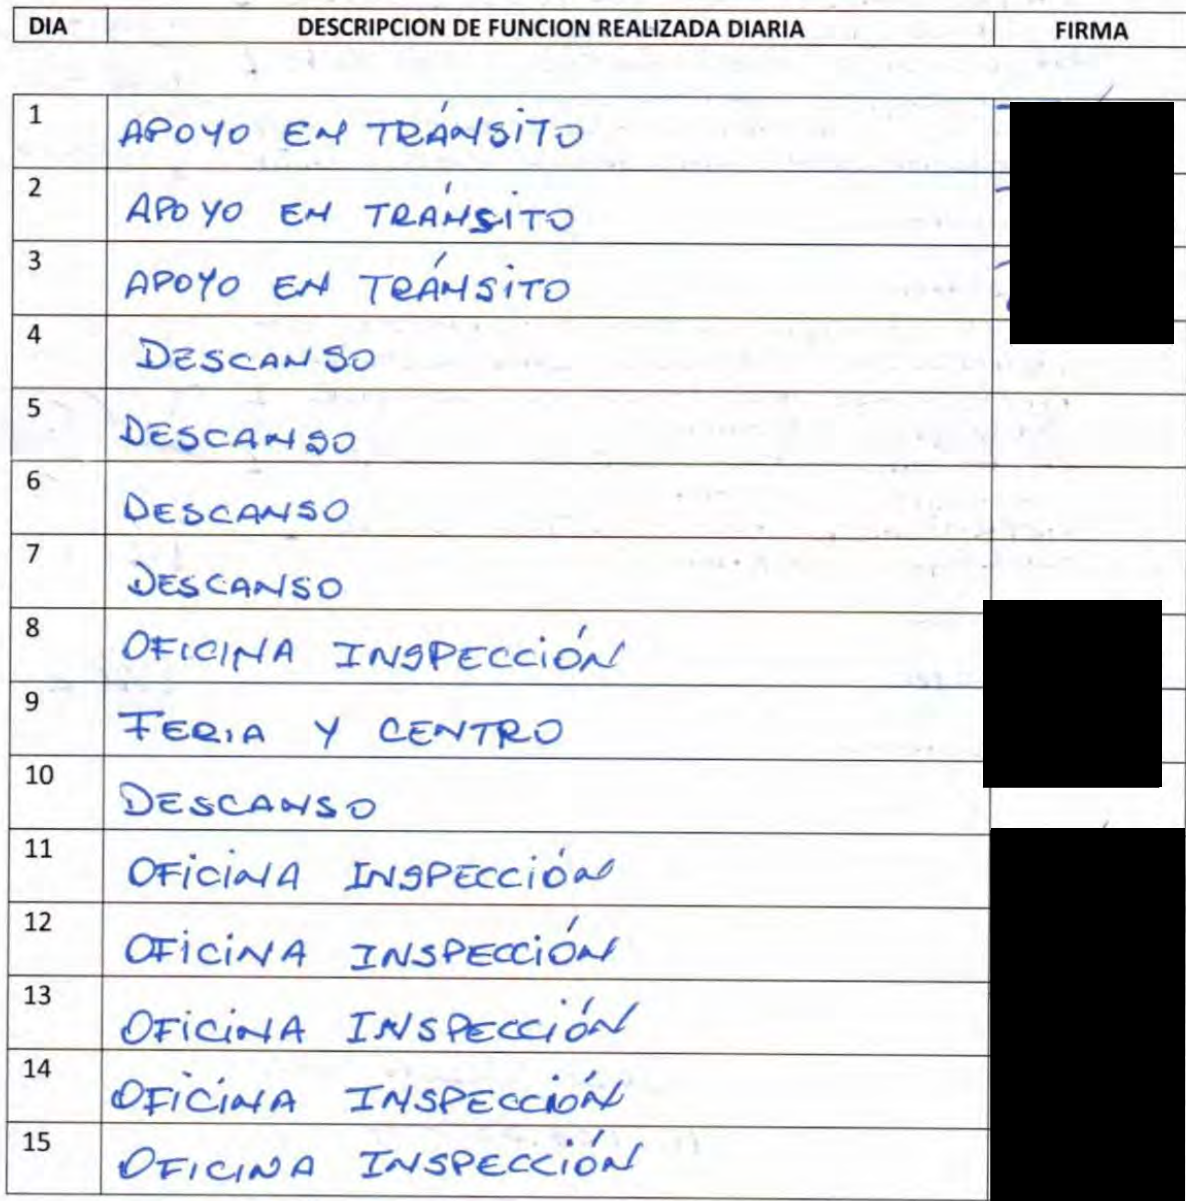 DIA DESCRIPCION DE FUNCION REALIZADA DIARIA FIRMA
1 APOYO EN TRÁNSITO
2 APOYO EN TRÁNSITO
3 APOYO EN TRÁNSITO
4 DESCANSO
5 DESCANSO
6 DESCANSO
7 DESCANSO
8 OFICINA INSPECCIÓN
9 FERIA Y CENTRO
10 DESCANSO
11 OFICINA INSPECCIÓN
12 OFICINA INSPECCIÓN
13 OFICINA INSPECCIÓN
14 OFICINA INSPECCIÓN
15 OFICINA INSPECCIÓN